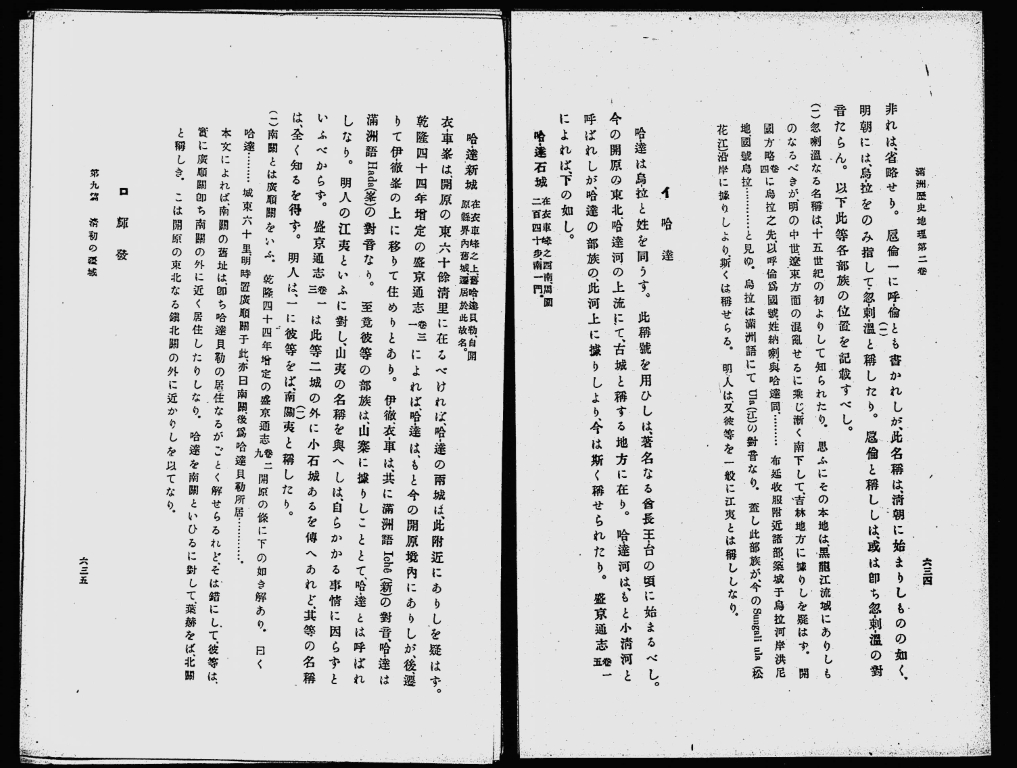 滿洲歷史地理第二卷
六三四
非れは、省略せり。扈倫一に呼倫とも書かれしが、此名稱は清朝に始まりしものの如く、
明朝には、烏拉をのみ指して、忽剌溫と稱したり。扈倫と稱ししは、或は卽ち忽剌溫の對
音たらん。以下此等各部族の位置を記載すべし。
(一)忽喇溫なる名稱は十五世紀の初よりして知られたり。思ふにその本地は、黑龍江流域にありしも
のなるべきが、明の中世遼東方面の混亂せるに乘じ、漸く南下して、吉林地方に據りしを疑はず。開
國方略卷四に烏拉之先、以呼倫爲國號、姓納喇、與哈達同………布延收服附近諸部築城于烏拉河岸洪尼
地國號烏拉………と見ゆ。烏拉は滿洲語にて Ula(江)の對音なり。蓋し此部族が、今の Sungali ula (松
花江)沿岸に據りしより、斯くは稱せらる。明人は、又彼等を一般に江夷とは稱ししなり。
イ 哈達
哈達は烏拉と姓を同うす。此稱號を用ひしは、著名なる酋長王台の頃に始まるべし。
今の開原の東北哈達河の上流にて、古城と稱する地方に在り。哈達河は、もと小淸河と
呼ばれしが、哈達の部族の、此河上に據りしより、今は斯く稱せられたり。盛京通志卷一五
によれば、下の如し。
哈達石城 在衣車峰之西南、周圍二百四十步、南一門。
哈達新城 在衣車峰之上、舊哈達貝勒、自開原縣界內舊城、遷居於此、故名。
衣車峯は、開原の東六十餘淸里に在るべければ、哈達の兩城は、此附近にありしを疑はず。
乾隆四十四年增定の盛京通志卷三一によれば、哈達は、もと今の開原境內にありしが、後、遷
りて伊徹峯の上に移りて住めりとあり。伊徹、衣車は、共に滿洲語 Iché (新)の對音、哈達は
滿洲語 Hada(峯)の對音なり。至竟彼等の部族は、山寨に據りしこととて、哈達とは呼ばれ
しなり。明人の江夷といふに對し、山夷の名稱を與へしは、自らかかる事情に因らずと
いふべからず。盛京通志卷一三は此等二城の外に小石城あるを傳へあれど、其等の名稱
は、全く知るを得ず。明人は、一に彼等をば、南關夷と稱したり。
(二)南關とは廣順關をいふ。乾隆四十四年增定の盛京通志卷二九開原の條に下の如き解あり。曰く
哈達………城東六十里、明時置廣順關于此、亦曰南關、後爲哈達貝勒所居………。
本文によれば、南關の舊址は、卽ち哈達貝勒の居住なるがごとく解せらるれど、そは錯にして、彼等は、
實に廣順關卽ち南關の外に近く居住したりしなり。哈達を南關といひるに對して、葉赫をば、北關
と稱しき。こは開原の東北なる鎭北關の外に近かりしを以てなり。
ロ 輝發
第九篇 淸初の疆域
六三五